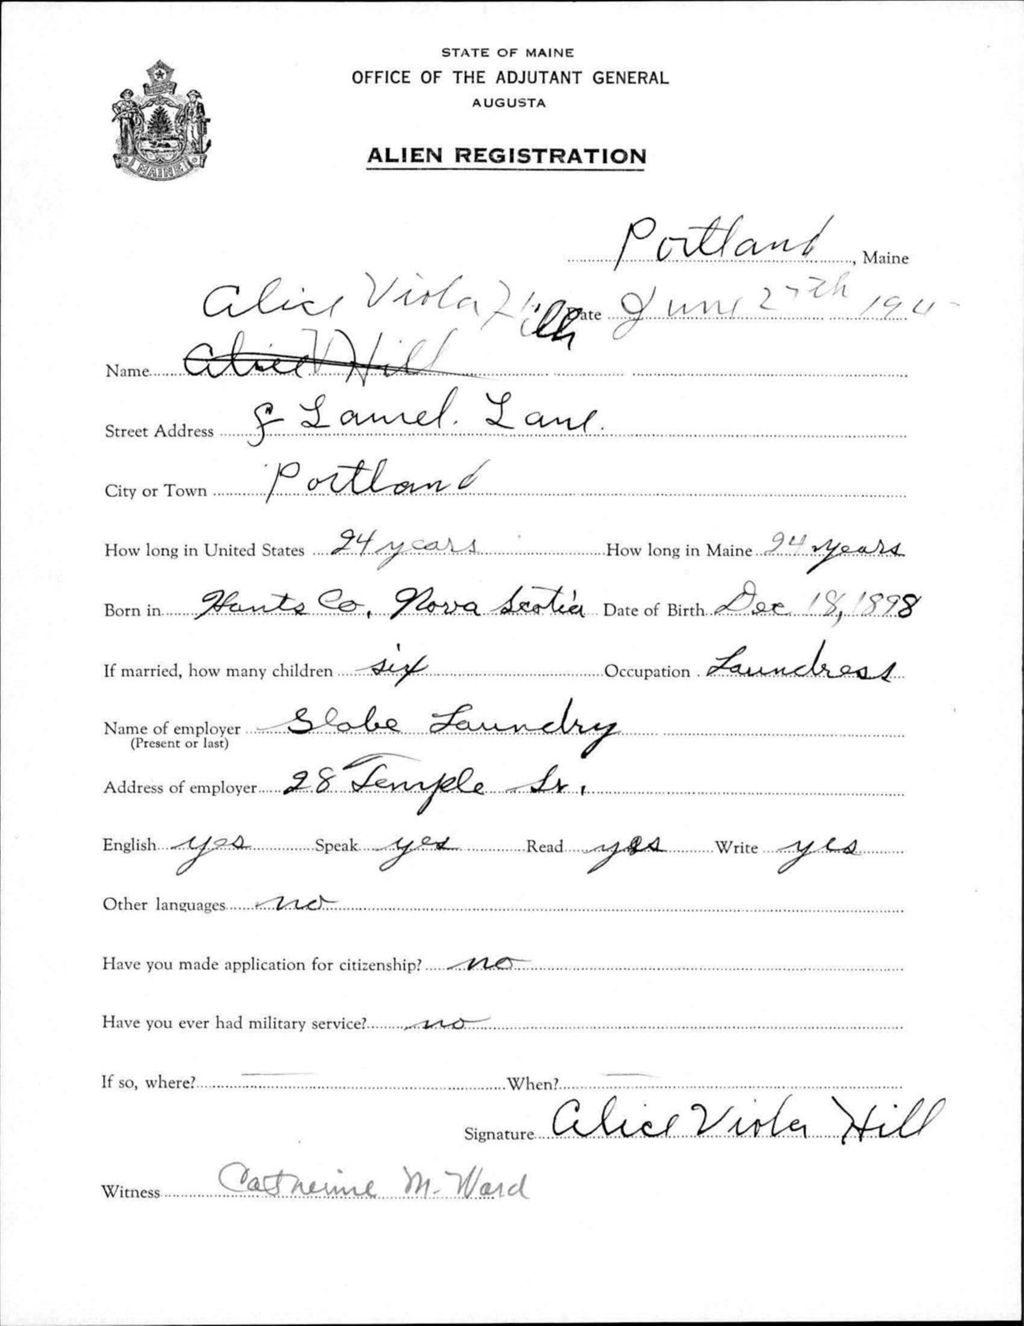 STATE OF MAINE
OFFICE OF THE ADJUTANT GENERAL
AUGUSTA
MAINE
ALIEN REGISTRATION
Portland, Maine
Alice Viola Hill Date June 27th 194
Name Alice V Hill
Street Address 8 Laurel. Lane.
City or Town Portland
How long in United States 24 years How long in Maine 24 years
Born in Hants Co, Nova Scotia Date of Birth Dec 18, 1898
If married, how many children six Occupation Laundress
Name of employer Globe Laundry
(Present or last)
Address of employer 28 Temple St.
English yes Speak yes Read yes Write yes
Other languages no
Have you made application for citizenship? no
Have you ever had military service? no
If so, where? — When? —
Signature Alice Viola Hill
Witness Catherine M. Ward